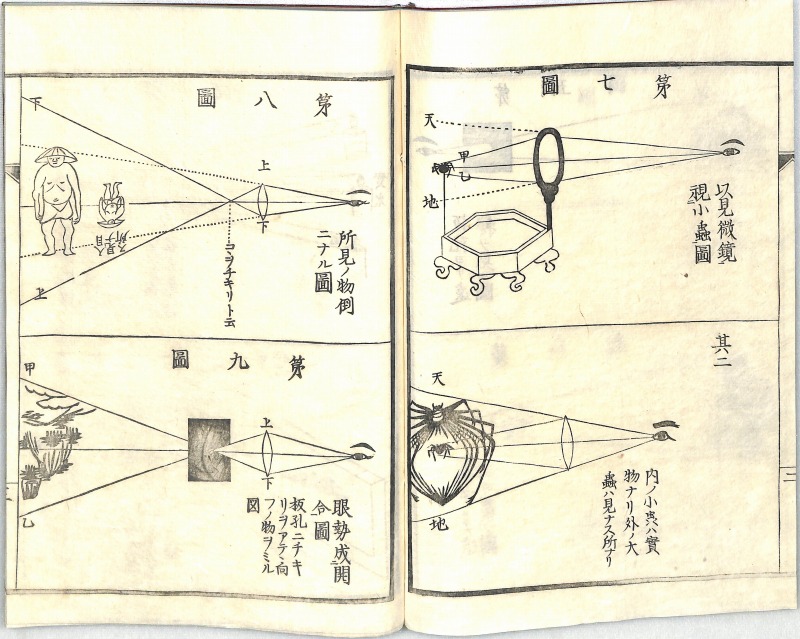 第七圖
天
甲
乙
地
以見微鏡
視小蟲圖
其二
天
地
内ノ小虫ハ實
物ナリ外ノ大
蟲ハ見ナス所ナリ
第八圖
下
上
上
下
所見ノ物倒
ニナル圖
コヲチキリト云
第九圖
甲
乙
上
下
眼勢成開
合圖
板孔ニチキ
リヲアテ向
フノ物ヲミル
図